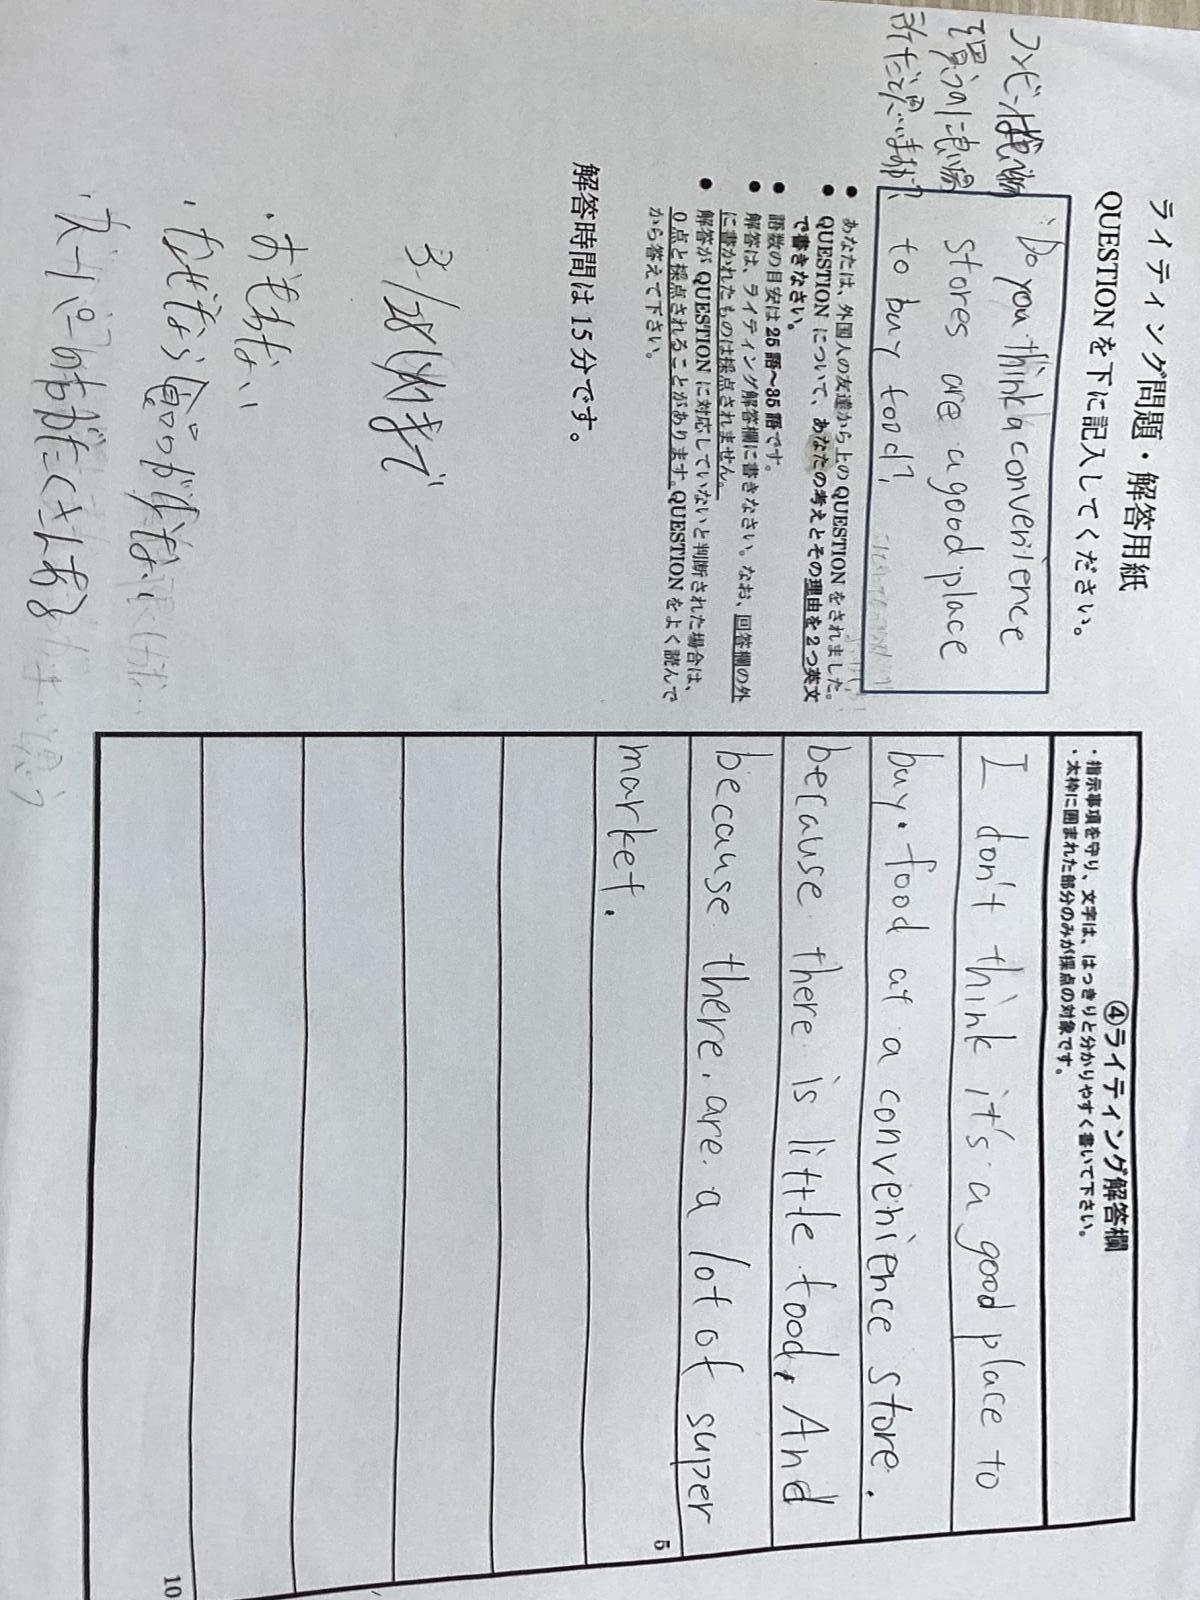 ライティング問題・解答用紙
QUESTIONを下に記入してください。
コンビニは食べ物
を買うのに良い場
所だと思いますか?
Do you think convenience
stores are a good place
to buy food?
● あなたは、外国人の友達から上のQUESTIONをされました。
● QUESTIONについて、あなたの考えとその理由を2つ英文
で書きなさい。
● 語数の目安は25語～35語です。
● 解答は、ライティング解答欄に書きなさい。なお、回答欄の外
に書かれたものは採点されません。
● 解答がQUESTIONに対応していないと判断された場合は、
0点と採点されることがあります。QUESTIONをよく読んで
から答えて下さい。
解答時間は15分です。
3/28(火)まで
・おもわない
・なぜなら食品が少ない
・スーパーのほうがたくさんある
④ライティング解答欄
・指示事項を守り、文字は、はっきりと分かりやすく書いて下さい。
・太枠に囲まれた部分のみが採点の対象です。
I don't think it's a good place to
buy food at a convenience store.
because there is little food, And
because there are a lot of super
market.
5
10